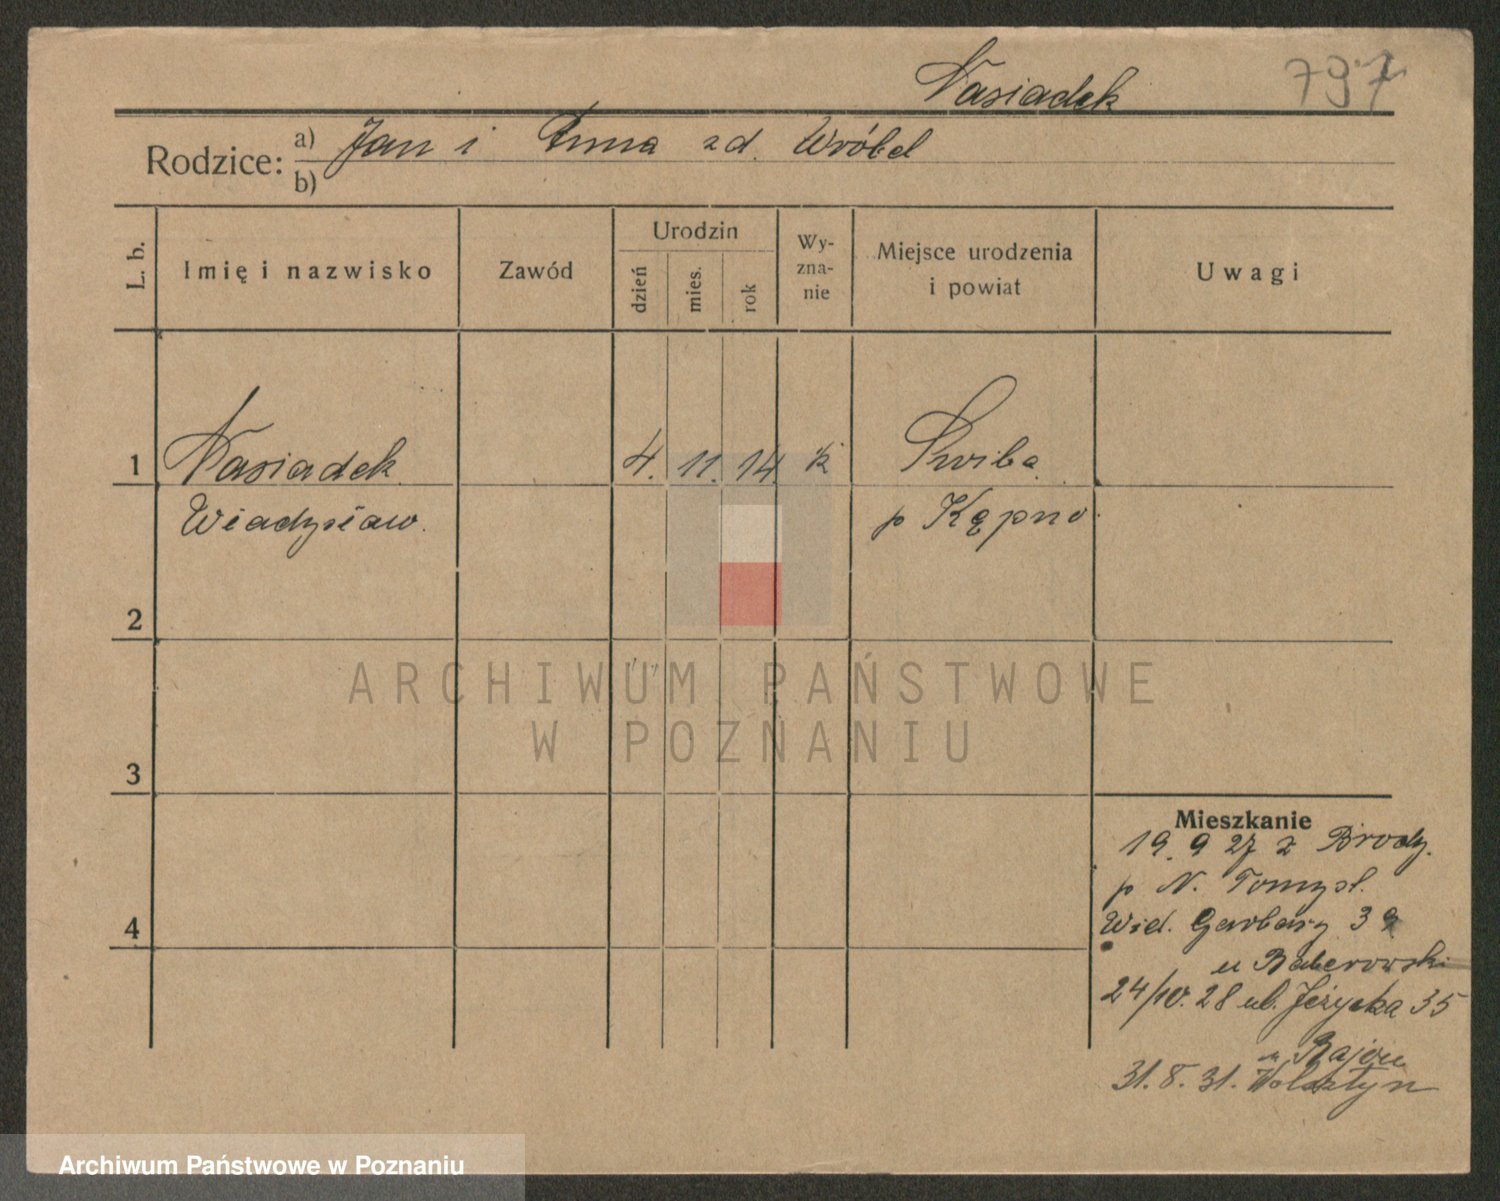 Nasiadek 797
Rodzice: a) Jan i Anna zd. Wróbel
b)
L. b. Imię i nazwisko Zawód Urodzin dzień mies. rok Wy-zna-nie Miejsce urodzenia i powiat Uwagi
1 Nasiadek 4. 11. 14. k Świba
Władysław. p Kępno.
2
ARCHIWUM PAŃSTWOWE
W POZNANIU
3
Mieszkanie
19. 9 27 z Brody.
p N. Tomyśl.
4 Wid. Garbary 39
u Baberowski
24/10. 28 ul. Jeżycka 35
u
31. 8. 31. Wolsztyn
Archiwum Państwowe w Poznaniu